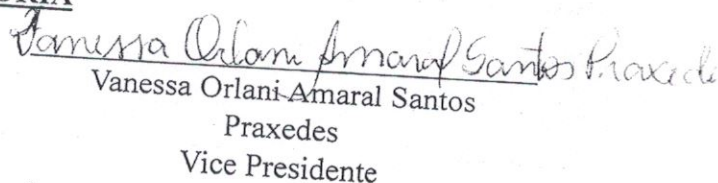 Vanessa Orlani Amaral Santos Praxedes
Vanessa Orlani Amaral Santos
Praxedes
Vice Presidente